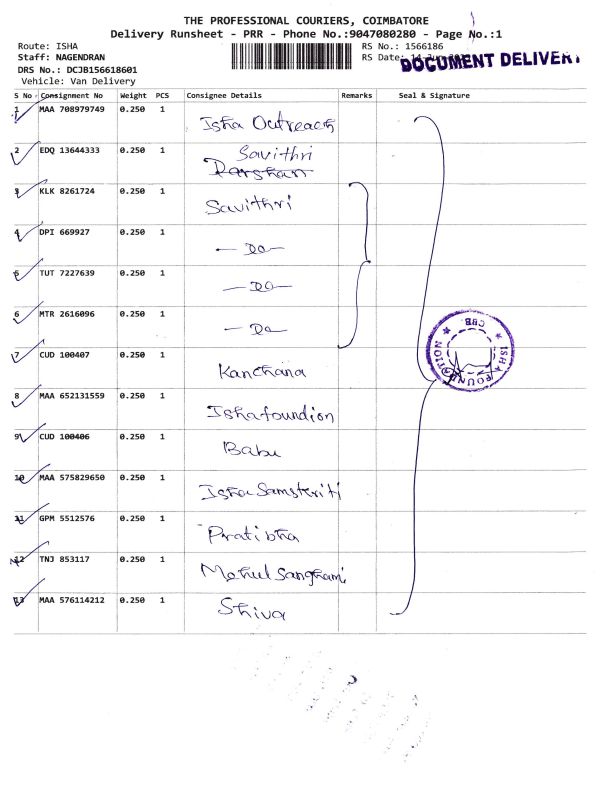 THE PROFESSIONAL COURIERS, COIMBATORE
Delivery Runsheet - PRR - Phone No.:9047080280 - Page No.:1
Route: ISHA
RS No.: 1566186
Staff: NAGENDRAN
RS Date:
DOCUMENT DELIVERY
DRS No.: DCJB156618601
Vehicle: Van Delivery
S No Consignment No Weight PCS Consignee Details Remarks Seal & Signature
1 MAA 708979749 0.250 1 Isha Outreach
2 EDQ 13644333 0.250 1 Savithri
Darshan
3 KLK 8261724 0.250 1 Savithri
4 DPI 669927 0.250 1 — Do —
5 TUT 7227639 0.250 1 — Do —
6 MTR 2616096 0.250 1 — Do —
7 CUD 100407 0.250 1 Kanchana
8 MAA 652131559 0.250 1 Ishafoundion
9 CUD 100406 0.250 1 Babu
10 MAA 575829650 0.250 1 Isha Samskriti
11 GPM 5512576 0.250 1 Pratibha
12 TNJ 853117 0.250 1 Mehul Sanghami
13 MAA 576114212 0.250 1 Shiva
ISHA FOUNDATION
CBE